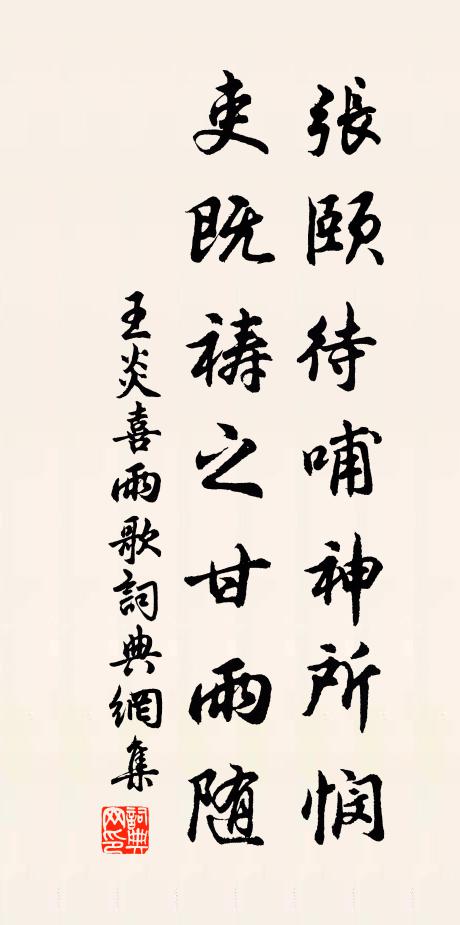 張頤待哺神所憫
吏既禱之甘雨隨
王炎喜雨歌詞典網集
詞典網印